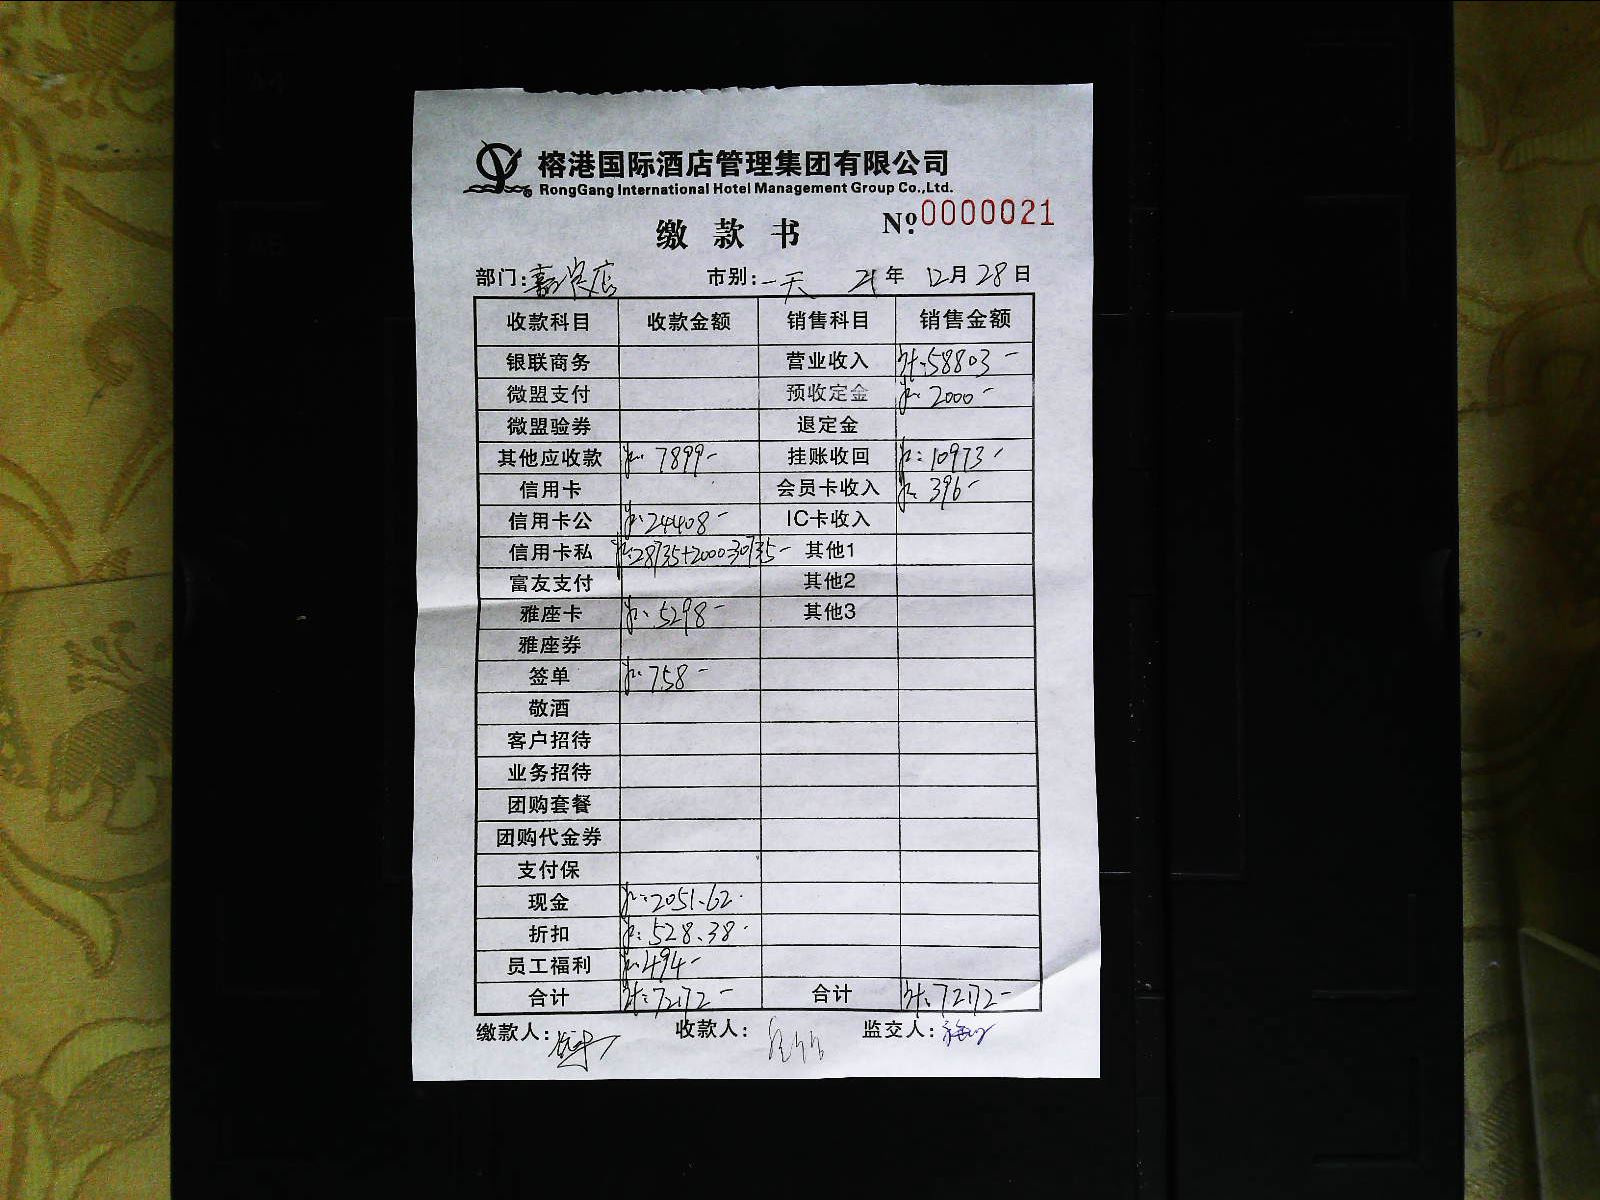 榕港国际酒店管理集团有限公司
RongGang International Hotel Management Group Co.,Ltd.
缴款书 Nº:0000021
部门: 店 市别:一天 21年 12月28日
收款科目 收款金额 销售科目 销售金额
银联商务 营业收入 计:58803-
微盟支付 预收定金 2000-
微盟验券 退定金
其他应收款 7899- 挂账收回 10973-
信用卡 会员卡收入 396-
信用卡公 24408- IC卡收入
信用卡私 28735+2000 30735- 其他1
富友支付 其他2
雅座卡 5298- 其他3
雅座券
签单 758-
敬酒
客户招待
业务招待
团购套餐
团购代金券
支付保
现金 2051.62
折扣 528.38-
员工福利 494-
合计 计:72172- 合计 计:72172-
缴款人: 收款人: 监交人: